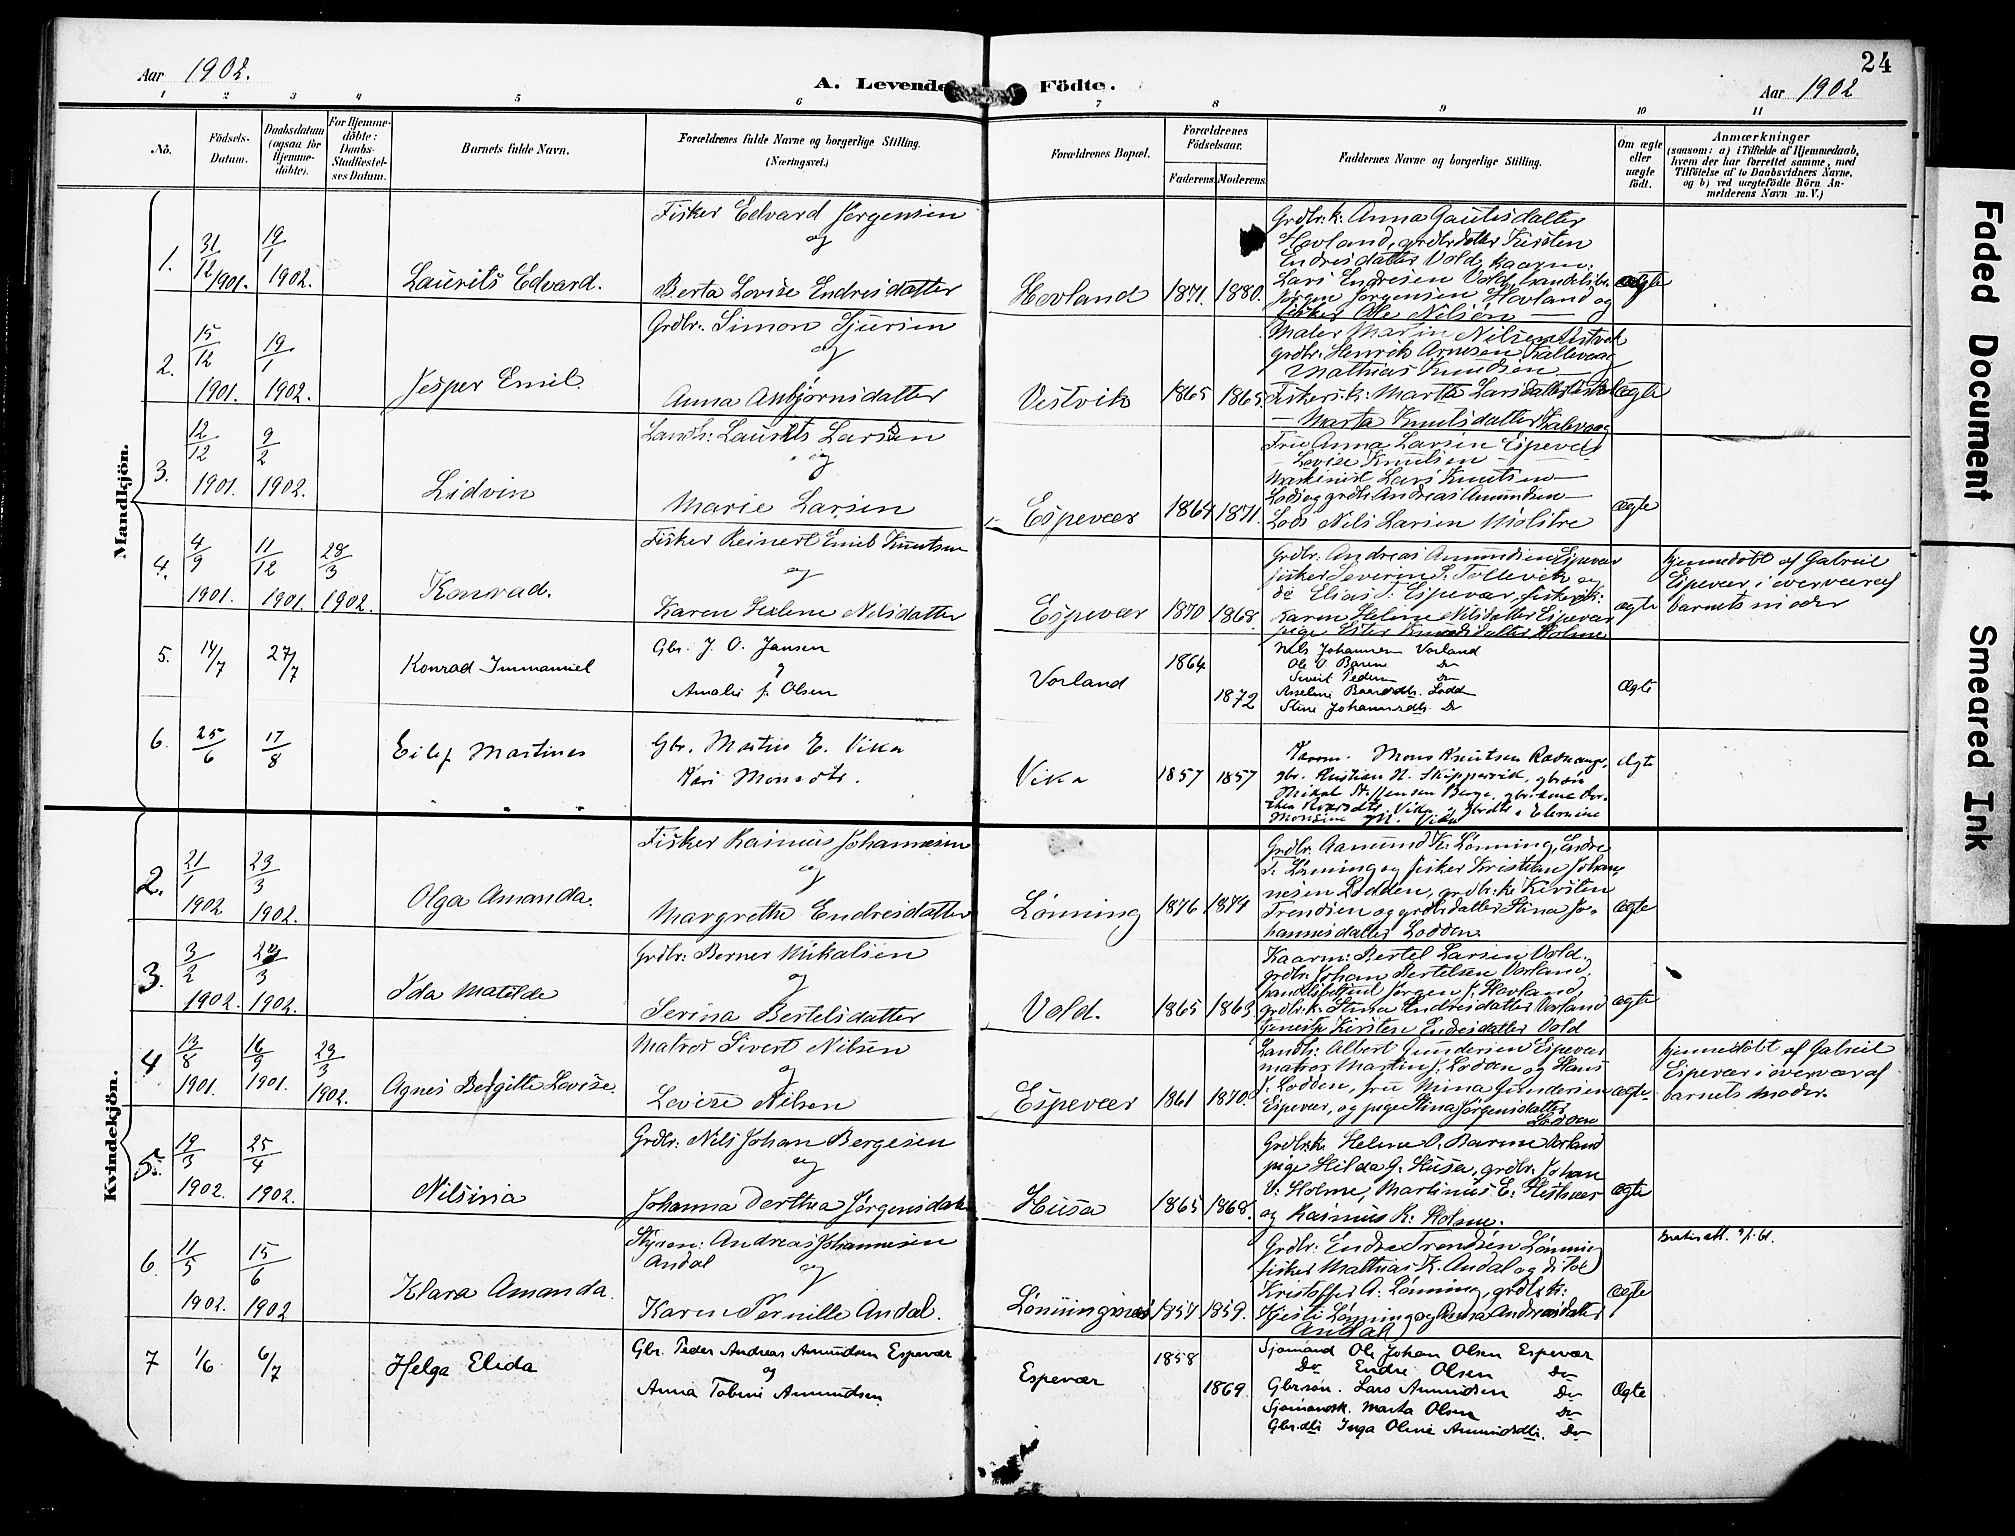 24
Aar 1902.
A. Levende Födte.
Aar 1902
1 2 3 4 5 6 7 8 9 10 11
Nö.
Födsels-Datum.
Daabsdatum (ogsaa för Hjemme-döbte).
For Hjemme-döbte: Daabs-Stadfæstel-ses Datum.
Barnets fulde Navn.
Forældrenes fulde Navne og borgerlige Stilling.
(Næringsvei.)
Forældrenes Bopæl.
Forældrenes Födselsaar.
Faderens. Moderens.
Faddernes Navne og borgerlige Stilling.
Om ægte eller uægte födt.
Anmærkninger
(saasom: a) i Tilfælde af Hjemmedaab,
hvem der har forrettet samme, med
Tilföielse af to Daabsvidners Navne,
og b) ved uægtefödte Börn An-
melderens Navn m. V.)
Mandkjön.
1.
31/12 1901.
19/1 1902.
Laurits Edvard.
Fisker Edvard Jørgensen
og
Berta Lovise Endresdatter
Hovland
1871.
1880.
Grdbr.k: Anna Gautesdatter
Hovland, grdbrdatter Kirsten
Endresdatter Vold, kaarm:
Lars Endresen Vold, handelsbe.
Jørgen Jørgensen Hovland og
fisker Ole Nilsen —
ægte
2.
15/12 1901.
19/1 1902.
Jesper Emil.
Grdbr: Simon Sjursen
og
Anna Asbjørnsdatter
Vestvik
1865
1865.
Maler Martin Nilsen Vestvik
grdbr: Henrik Arnesen Kallevaag
Mathias Knudsen —
Fiskers k: Marta Larsdatter
— Marta Knutsdatter Kalevaag
ægte
3.
12/12 1901.
9/2 1902.
Lidvin
Landh: Laurits Larsen
og
Marie Larsen
Espevær
1864
1871.
Frue Anna Larsen Espevær
Lovise Knutsen —
Maskinist Lars Knutsen —
Lods og grdbr Andreas Amundsen —
Lods Nils Larsen
ægte
4.
4/9 1901.
11/12 1901.
28/3 1902.
Konrad.
Fisker Reinert Emil Knutsen
og
Karen Helene Nilsdatter
Espevær
1870
1868.
Grdbr: Andreas Amundsen Espevær
fisker Severin S. Tollevik og
do Elias S: Espevær, fiskers k:
Karen Helene Nilsdatter Espevær
pige Ester Knudsdatter Holme
ægte
hjemmedøbt af Gabriel
Espevær i overvær af
barnets moder
5.
14/7
27/7
Konrad Immanuel
Gbr. J. O. Jansen
og
Amalie J. Olsen
Vorland
1864
1872
Nils Johannesen Vorland
Ole O. Barene Do
Sivert Pedersen Do
Asseline Baardsdtr. Lodd
Stine Johannesdtr. Do
Ægte
6.
25/6
17/8
Eilef Martines
Gbr. Martin E. Vika
Kari Monsdtr.
Vika
1857
1857
Kaarm. Mons Knutsen Radhauge,
gbr. Kristian H. Skippervik, gbrsøn
Mikal Steffensen Berge, gbr.kone
Vika, gbrdtr. Elernine
Monsine M. Vika
Ægte
Kvindekjön.
2.
21/1 1902
23/3 1902.
Olga Amanda.
Fisker Rasmus Johannesen
og
Margrethe Endresdatter
Lønning
1876
1874
Grdbr. Aamund K. Lønning, Endre
T. Lønning og fisker Kristian Johan-
nesen Lodden, grdbr.k. Kirsten
Trondsen og grdbrdatter Stina Jo-
hannesdatter Lodden.
ægte
3.
3/2 1902.
24/3 1902.
Ida Matilde
Grdbr: Berner Mikalsen
og
Serina Bertelsdatter
Vold.
1865
1863
Kaarm: Bertel Larsen Vold,
grdbr: Johan Bertelsen Vorland,
handelsbetjent Jørgen J. Hovland,
grdbr.k. Stina Endresdatter Vorland
tjenestp Kirsten Endresdatter Vold
ægte
4
13/8 1901.
16/9 1901.
23/3 1902.
Agnes Bergitte Lovise.
Matros Sivert Nilsen
og
Lovise Nilsen
Espevær
1861
1870.
Landh: Albert Gundersen Espevær
matros Martin J. Lodden og Hans
J. Lodden, frue Mina Gundersen
Espevær, og pige Stina Jørgensdatter
Lodden
ægte.
hjemmedøbt af Gabriel
Espevær i overvær af
barnets moder.
5.
19/3 1902.
25/4 1902.
Nilsina
Grdbr: Nils Johan Bergesen
og
Johanna Dorthea Jørgensdatt
Husa
1865
1868.
Grdbr.k Helene O. Barene Vorland
pige Hilda G. Husa, grdbr. Johan
V. Holme, Martinius E. Hestnæs
og Rasmus K: Holme.
ægte
6.
11/5 1902.
15/6 1902
Klara Amanda.
Styrm: Andreas Johannesen
Andal
og
Karen Pernille Andal.
Lønningnæs
1857
1859.
Grdbr: Endre Trondsen Lønning
fisker Mathias K. Andal og dito
Kristoffer A. Lønning, grdbr.k:
Kjersti Lønning og Anna Andreasdatter
Andal
ægte
7
1/6
6/7
Helga Elida
Gbr. Peder Andreas Amundsen Espevær
og
Anna Tobine Amundsen
Espevær
1858
1869
Sjømand Ole Johan Olsen Espevær
Do Endre Olsen Do
Gbrsøn. Lars Amundsen Do
Sjømandsk. Marta Olsen Do
Gbr.dtr Inga Oline Amundsdtr. Do
Ægte
Faded Document
Smeared Ink